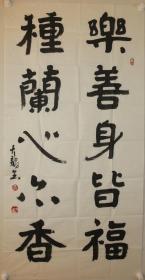 樂善身皆福
種蘭心亦香